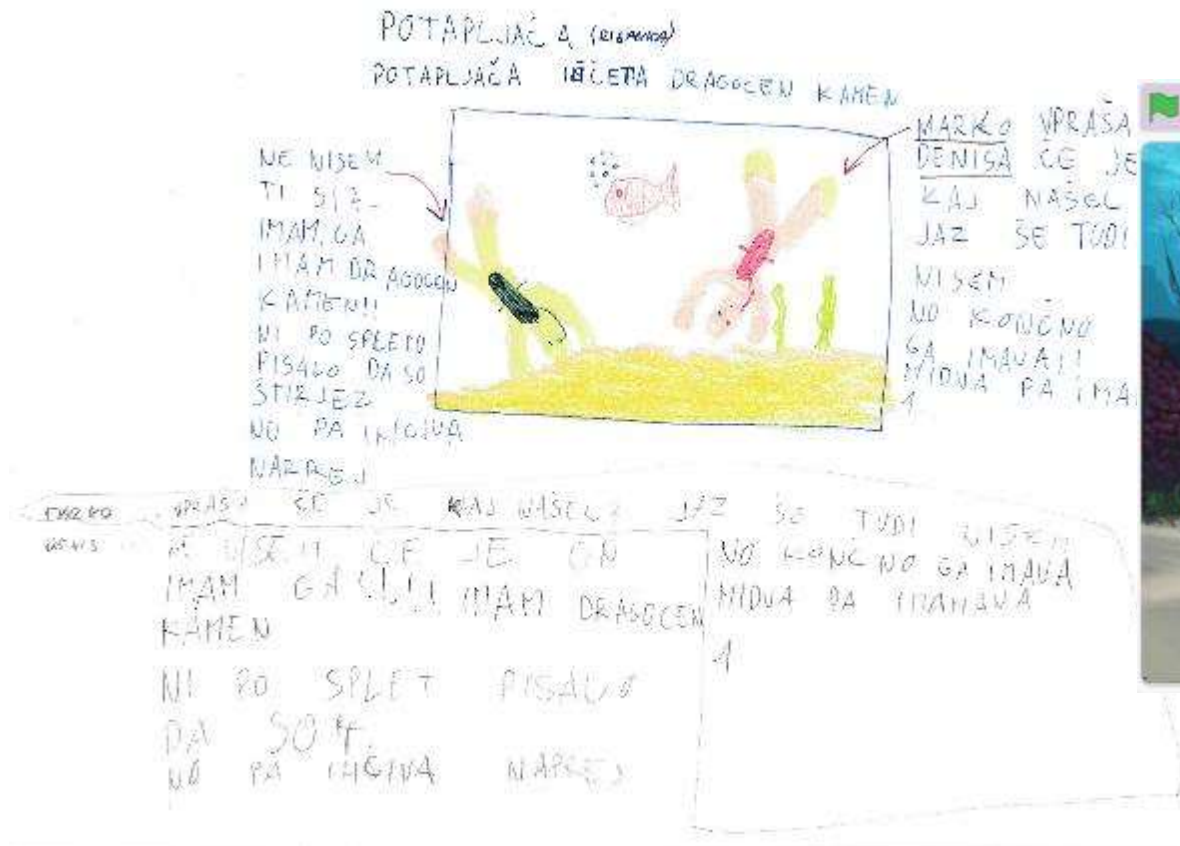 POTAPLJAČA (RISANKA)
POTAPLJAČA IŠČETA DRAGOCEN KAMEN
NE NISEM
TI SI
IMAM GA
IMAM DRAGOCEN
KAMEN!!
NI PO SPLETO
PISALO DA SO
ŠTIRJE
NO PA IŠČIVA
NAPREJ
MARKO VPRAŠA
DENISA ČE JE
KAJ NAŠEL
JAZ ŠE TUDI
NISEM
NO KONČNO
GA IMAVA!!
MIDVA PA IMA
1
MARKO VPRAŠA ČE JE KAJ NAŠEL JAZ ŠE TUDI NISEM
DENIS NISEM ČE JE ON
IMAM GA !!!! IMAM DRAGOCEN
KAMEN
NI PO SPLET PISALO
DA SO 4
NO PA IŠČIVA NAPREJ
NO KONČNO GA IMAVA
MIDVA PA IMAMAVA
1